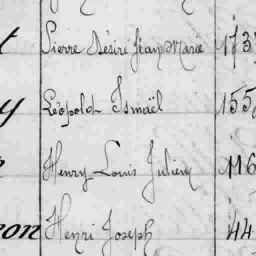 t Pierre Désiré Jean Marie 173
y Léopold Ismaël 155
Henry Louis Julien 116
on Henri Joseph 44